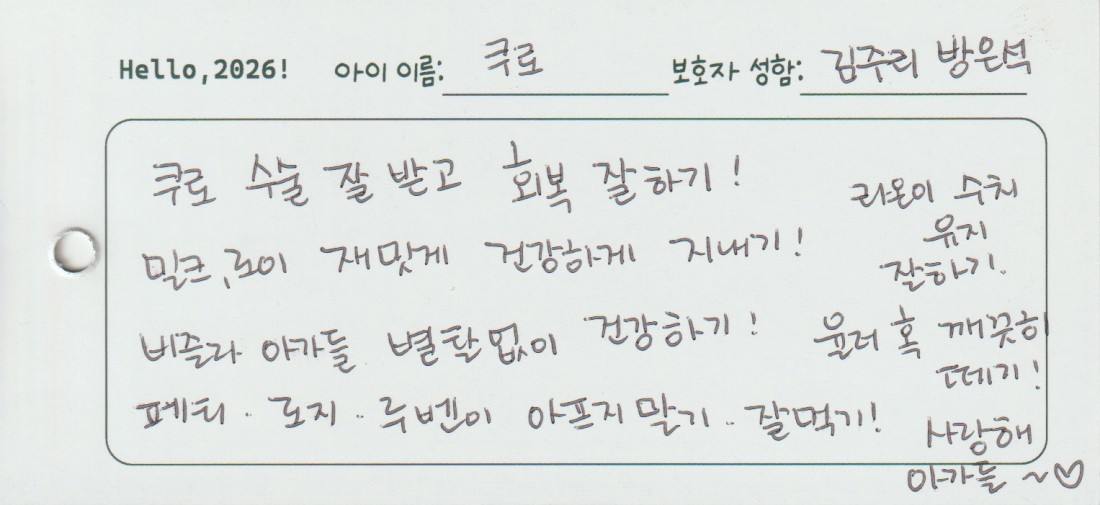 Hello,2026! 아이 이름: 쿠로 보호자 성함: 김주리 방은석
쿠로 수술 잘 받고 회복 잘하기!
밀크,로이 재밌게 건강하게 지내기!
비즐라 아가들 별탈없이 건강하기!
페티 · 로지 ·· 루벤이 아프지말기 ·· 잘먹기!
라온이 수치
유지
잘하기.
율러 혹 깨끗히
떼기!
사랑해
아가들 ~♡